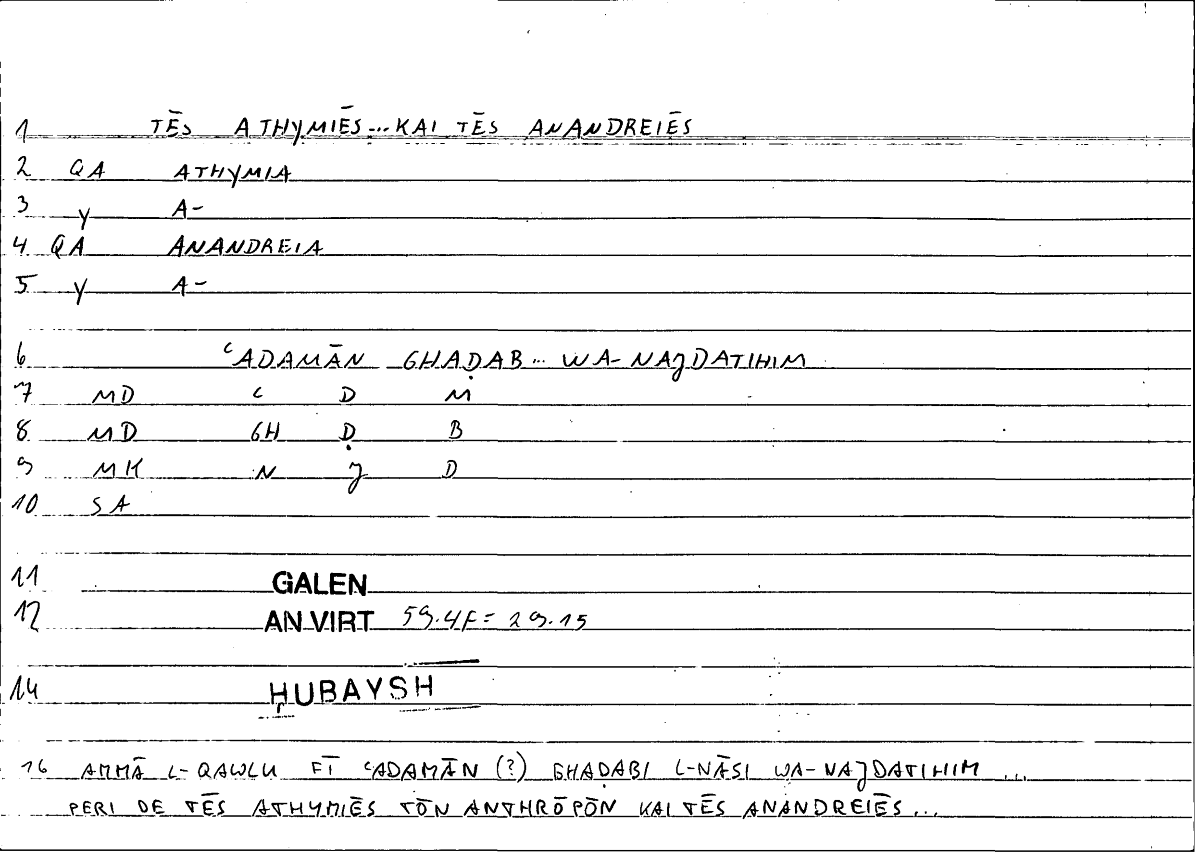 1 TĒS ATHYMIĒS...KAI TĒS ANANDREIĒS
2 QA ATHYMIA
3 Y A-
4 QA ANANDREIA
5 Y A-
6 ʿADAMĀN GHAḌAB... WA-NAJDATIHIM
7 MD ʿ D M
8 MD GH Ḍ B
9 MK N J D
10 SA
11 GALEN
12 AN VIRT 59.4F= 29.15
14 ḤUBAYSH
16 AMMĀ L-QAWLU FĪ ʿADAMĀN (?) GHAḌABI L-NĀSI WA-NAJDATIHIM ...
PERI DE TĒS ATHYMIĒS TŌN ANTHRŌPŌN KAI TĒS ANANDREIĒS...